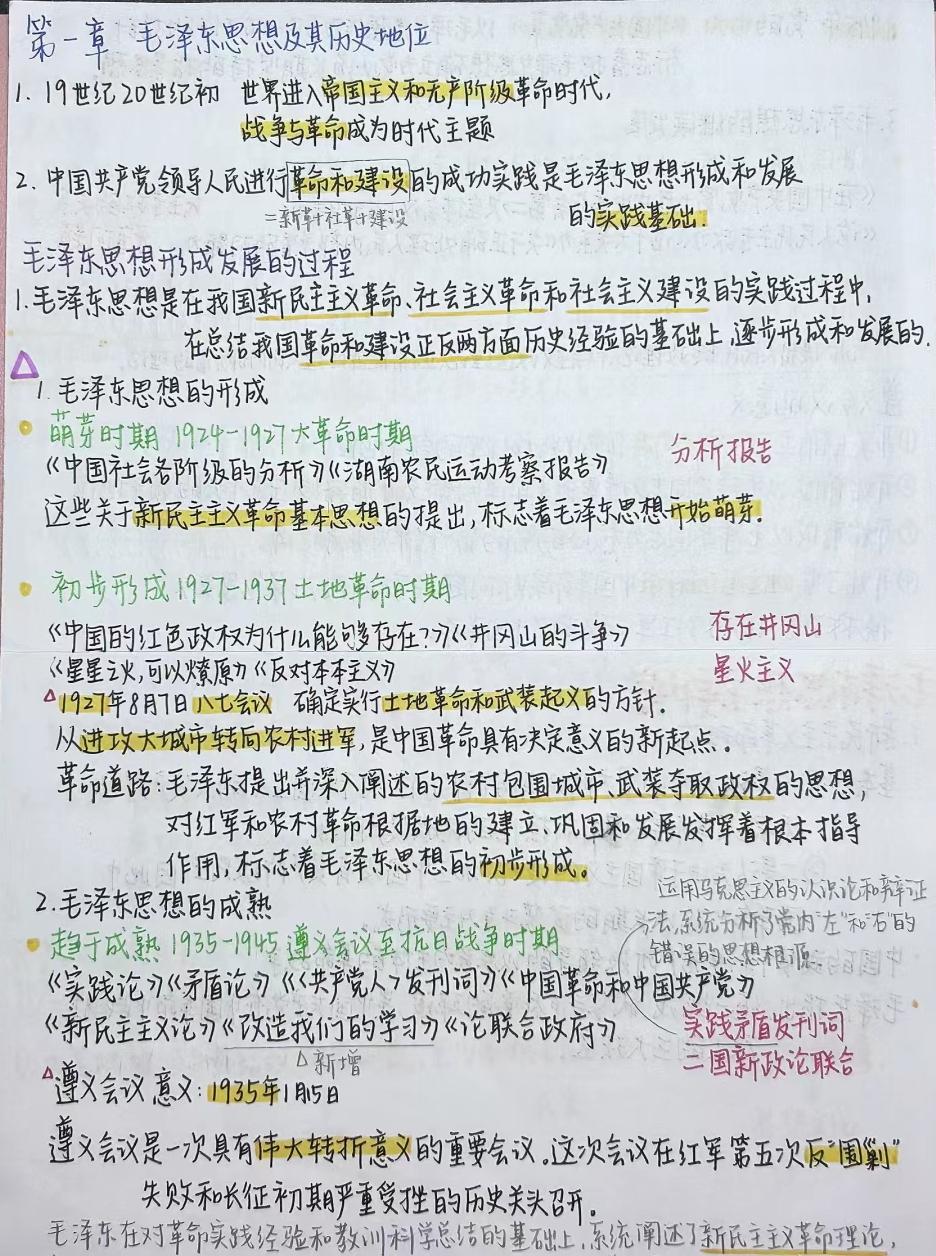 第一章 毛泽东思想及其历史地位
1. 19世纪20世纪初 世界进入帝国主义和无产阶级革命时代,
战争与革命成为时代主题
2. 中国共产党领导人民进行革命和建设的成功实践是毛泽东思想形成和发展
=新革+社革+建设
的实践基础.
毛泽东思想形成发展的过程
1. 毛泽东思想是在我国新民主主义革命、社会主义革命和社会主义建设的实践过程中,
在总结我国革命和建设正反两方面历史经验的基础上,逐步形成和发展的.
1. 毛泽东思想的形成
萌芽时期 1924-1927大革命时期
《中国社会各阶级的分析》《湖南农民运动考察报告》 分析报告
这些关于新民主主义革命基本思想的提出,标志着毛泽东思想开始萌芽.
初步形成 1927-1937土地革命时期
《中国的红色政权为什么能够存在?》《井冈山的斗争》 存在井冈山
《星星之火,可以燎原》《反对本本主义》 星火主义
1927年8月7日 八七会议 确定实行土地革命和武装起义的方针.
从进攻大城市转向农村进军,是中国革命具有决定意义的新起点。
革命道路:毛泽东提出并深入阐述的农村包围城市、武装夺取政权的思想,
对红军和农村革命根据地的建立、巩固和发展发挥着根本指导
作用,标志着毛泽东思想的初步形成。
2. 毛泽东思想的成熟
运用马克思主义的认识论和辩证
法,系统分析了党内"左"和"右"的
错误的思想根源
趋于成熟 1935-1945 遵义会议至抗日战争时期
《实践论》《矛盾论》《<共产党人>发刊词》《中国革命和中国共产党》
《新民主主义论》《改造我们的学习》《论联合政府》 实践矛盾发刊词
△新增 二国新政论联合
遵义会议 意义:1935年1月15日
遵义会议是一次具有伟大转折意义的重要会议。这次会议在红军第五次反"围剿"
失败和长征初期严重受挫的历史关头召开。
毛泽东在对革命实践经验和教训科学总结的基础上,系统阐述了新民主主义革命理论,